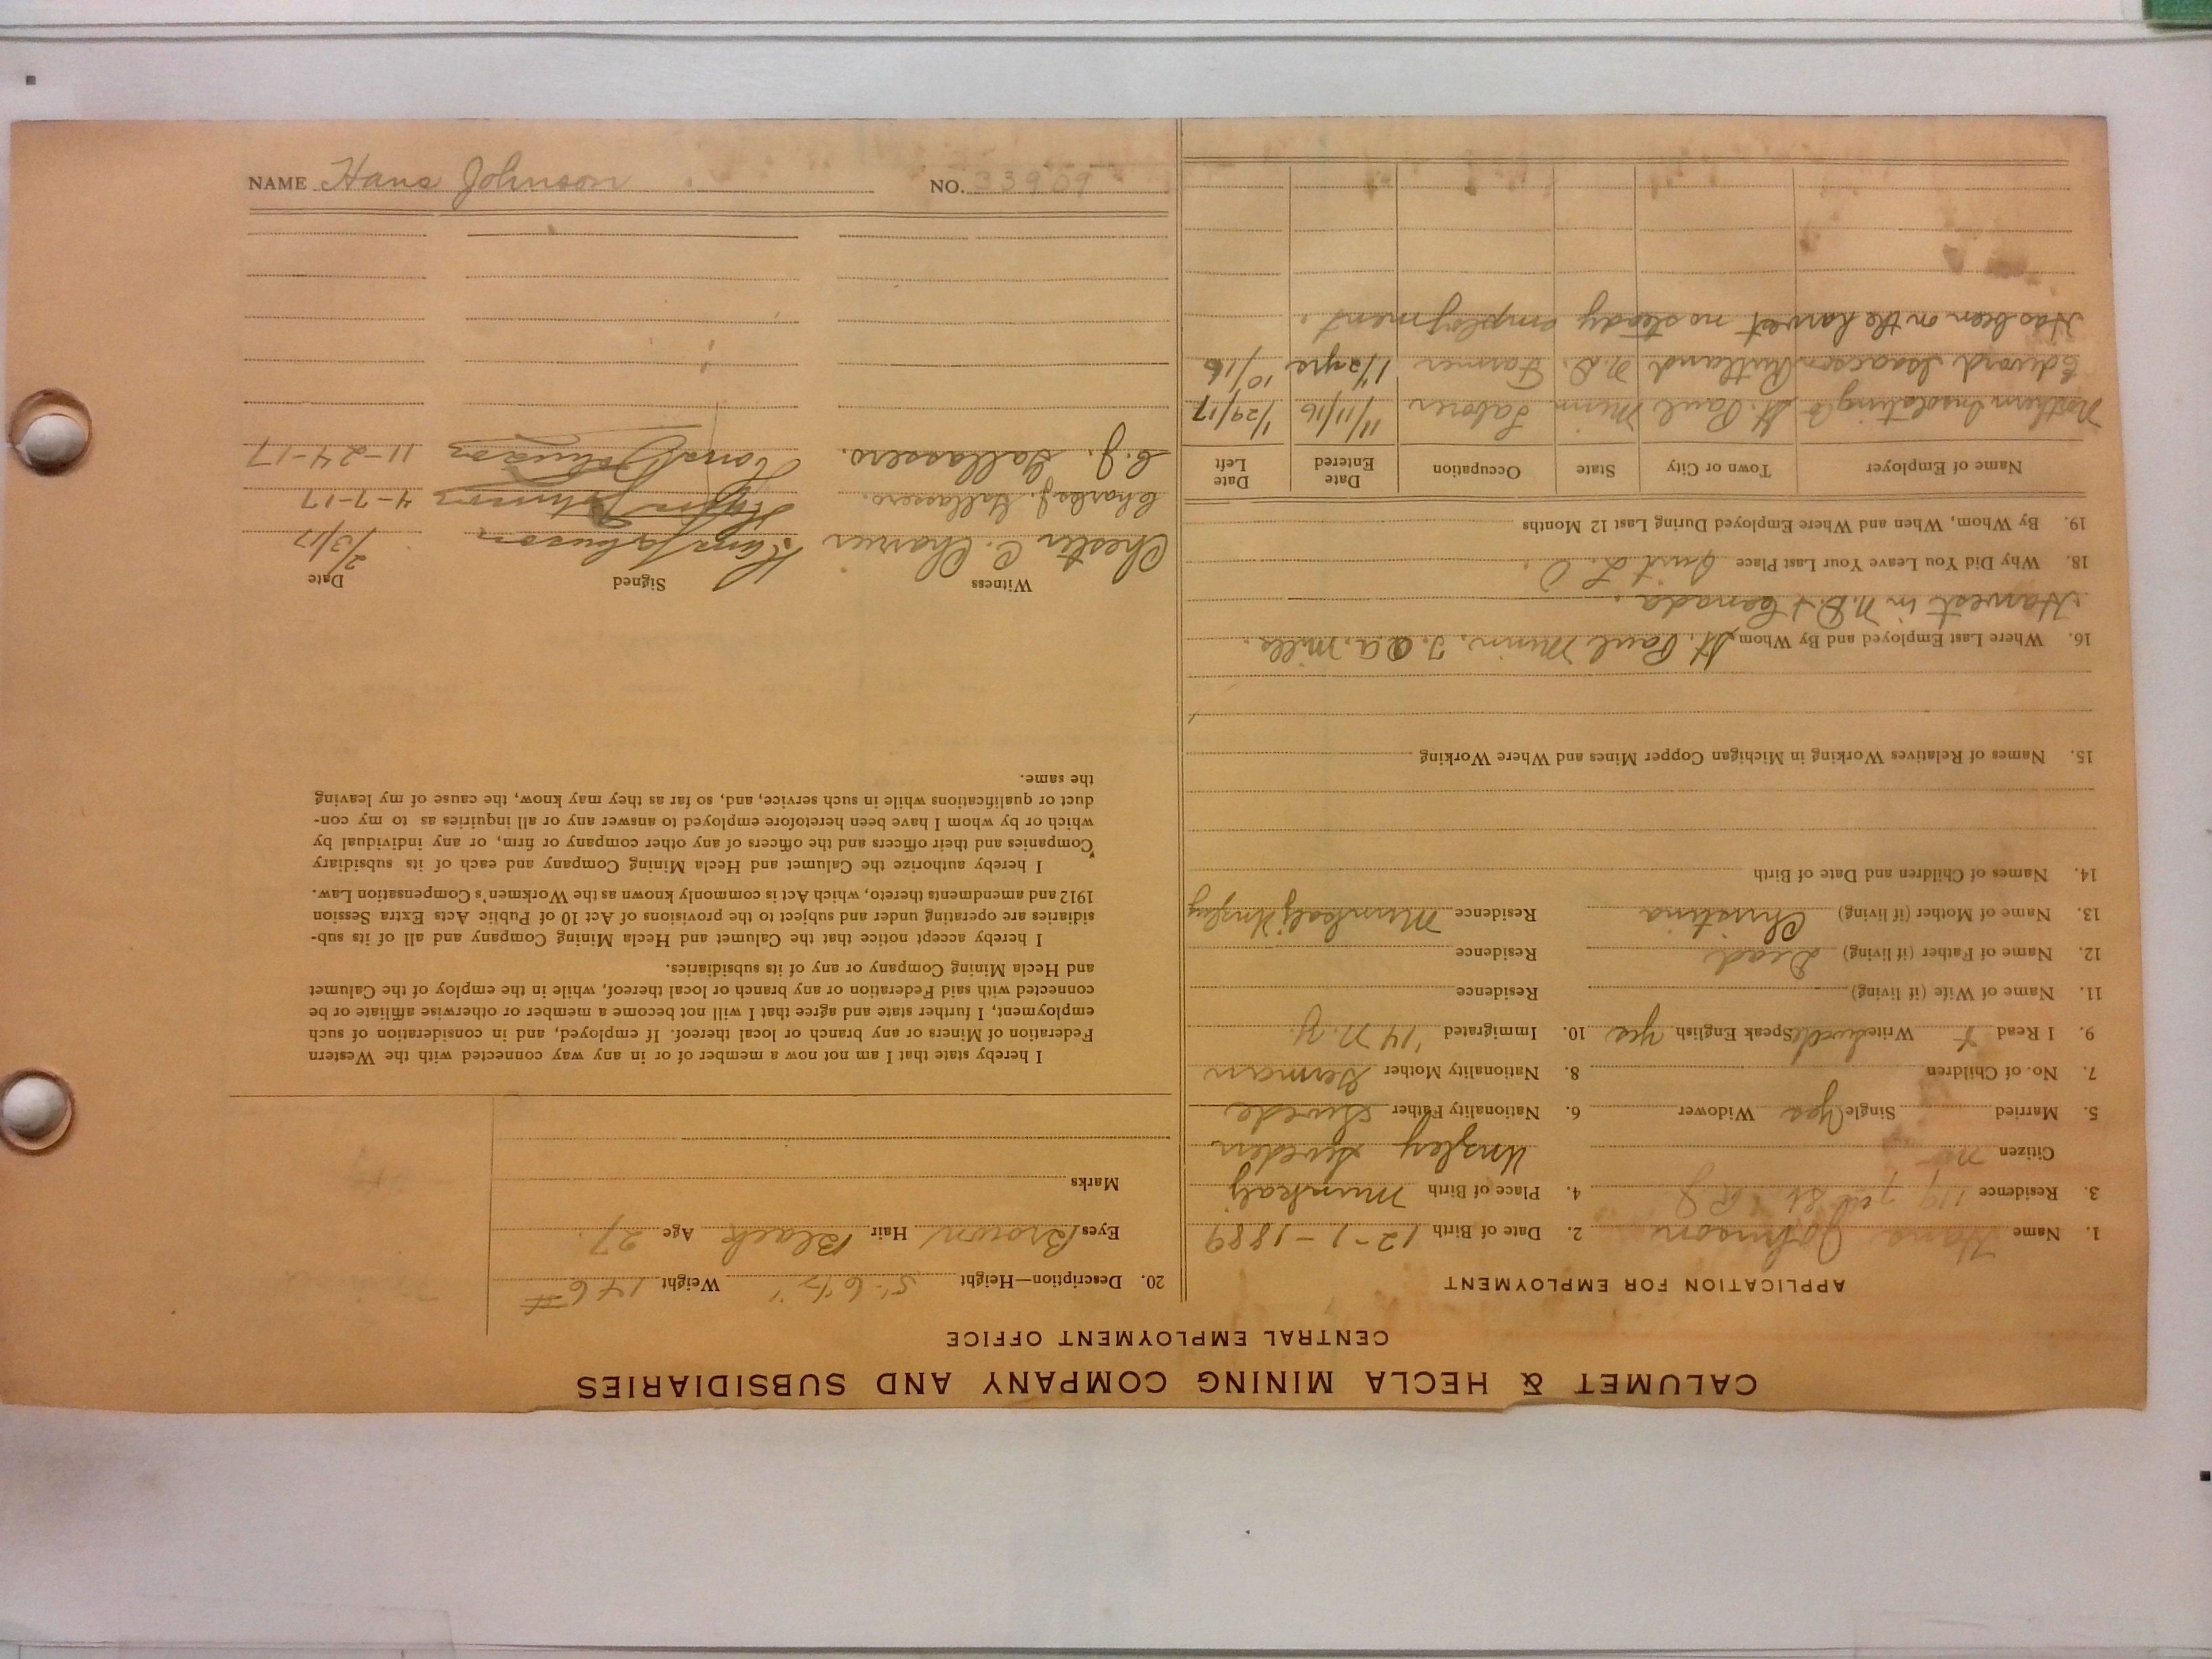 CALUMET & HECLA MINING COMPANY AND SUBSIDIARIES
CENTRAL EMPLOYMENT OFFICE
APPLICATION FOR EMPLOYMENT
1. Name Hans Johnson 2. Date of Birth 12-1-1889
3. Residence 119 7th St. 4. Place of Birth Munkalj
Citizen no Sweden
5. Married Single Yes Widower 6. Nationality Father Swede
7. No. of Children 8. Nationality Mother German
9. I Read Write Speak English Yes 10. Immigrated '14 N.Y.
11. Name of Wife (if living) Residence
12. Name of Father (if living) Dead Residence
13. Name of Mother (if living) Christina Residence Munkalj
14. Names of Children and Date of Birth
15. Names of Relatives Working in Michigan Copper Mines and Where Working
16. Where Last Employed and By Whom St. Paul Minn. Mills.
Harvest in N.D. + Canada.
18. Why Did You Leave Your Last Place
19. By Whom, When and Where Employed During Last 12 Months
Name of Employer Town or City State Occupation Date Entered Date Left
Northern Insulating Co St. Paul Minn Laborer 11/11/16 1/29/17
Edward Isaacson Rutland N.D. Farmer 1 1/2 yrs 10/16
Has been on the harvest no steady employment.
20. Description—Height 5'-6 1/2" Weight 146 #
Eyes Brown Hair Black Age 27
Marks
I hereby state that I am not now a member of or in any way connected with the Western
Federation of Miners or any branch or local thereof. If employed, and in consideration of such
employment, I further state and agree that I will not become a member or otherwise affiliate or be
connected with said Federation or any branch or local thereof, while in the employ of the Calumet
and Hecla Mining Company or any of its subsidiaries.
I hereby accept notice that the Calumet and Hecla Mining Company and all of its sub-
sidiaries are operating under and subject to the provisions of Act 10 of Public Acts Extra Session
1912 and amendments thereto, which Act is commonly known as the Workmen's Compensation Law.
I hereby authorize the Calumet and Hecla Mining Company and each of its subsidiary
Companies and their officers and the officers of any other company or firm, or any individual by
which or by whom I have been heretofore employed to answer any or all inquiries as to my con-
duct or qualifications while in such service, and, so far as they may know, the cause of my leaving
the same.
Witness Signed Date
Chester C. Hans Johnson 2/3/17
Charles J. Gallassero. Hans Johnson 4-7-17
C. J. Gallassero. Hans Johnson 11-24-17
NAME Hans Johnson NO. 33909